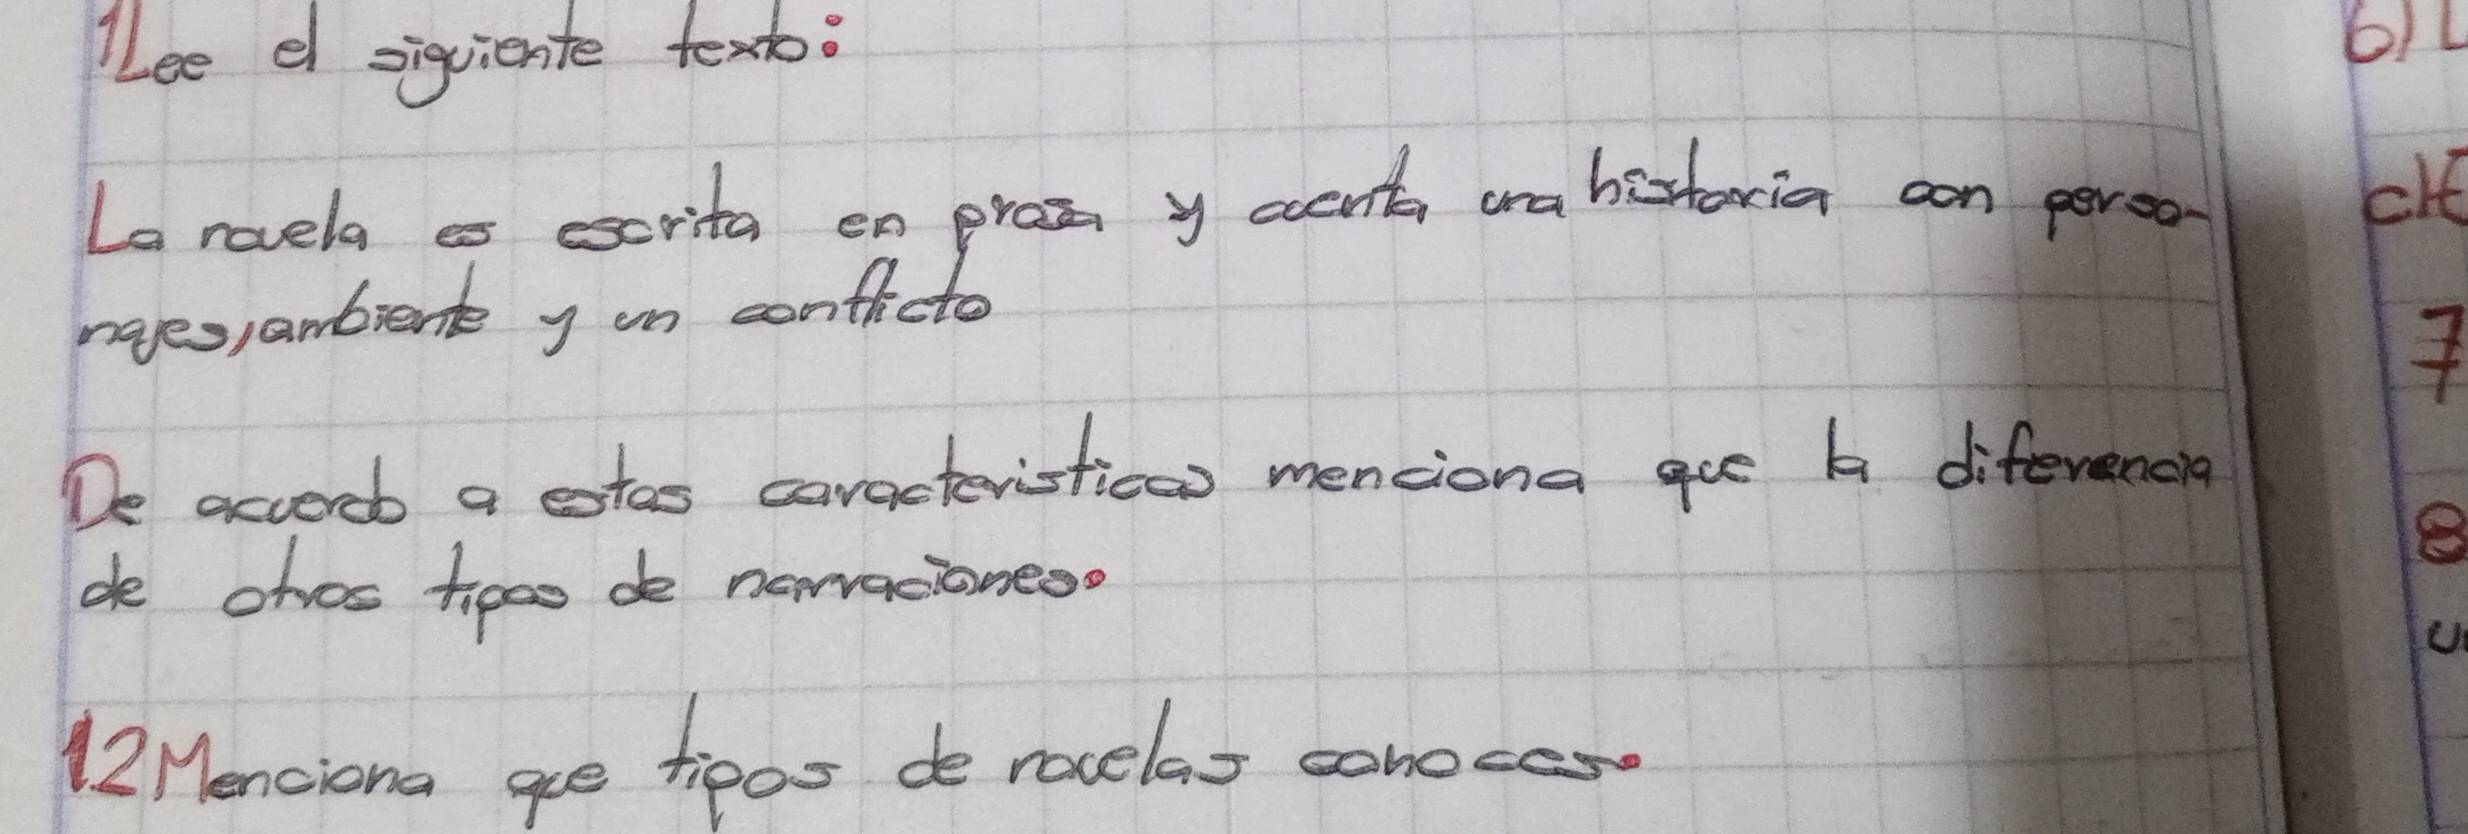 11Lee el siguiente texto:
La novela es escrita en prosa y cuenta una historia con perso-
najes, ambiente y un conflicto
De acuerdo a estas caracteristicas menciona que la diferencia
de otros tipos de narraciones.
12Menciona que tipos de novelas conoces.
6)
7
8